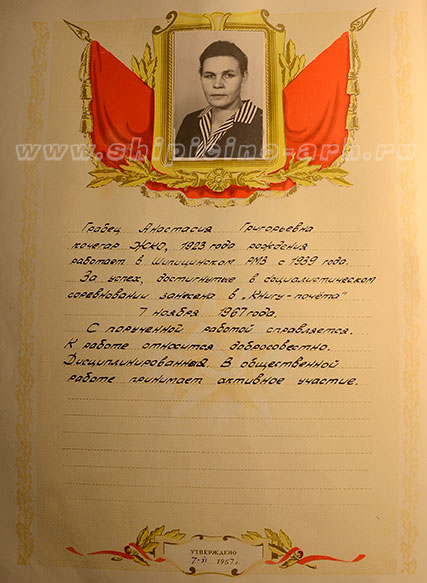 www.shipicino-arh.ru
Грабец Анастасия Григорьевна
кочегар ЖКО, 1923 года рождения
работает в Шипицинском РМЗ с 1939 года.
За успех, достигнутые в социалистическом
соревновании занесена в „Книгу-почёта"
7 ноября 1967 года.
С порученной работой справляется.
К работе относится добросовестно.
Дисциплинированный. В общественной
работе принимает активное участие.
УТВЕРЖДЕНО
7-XI 1967 г.